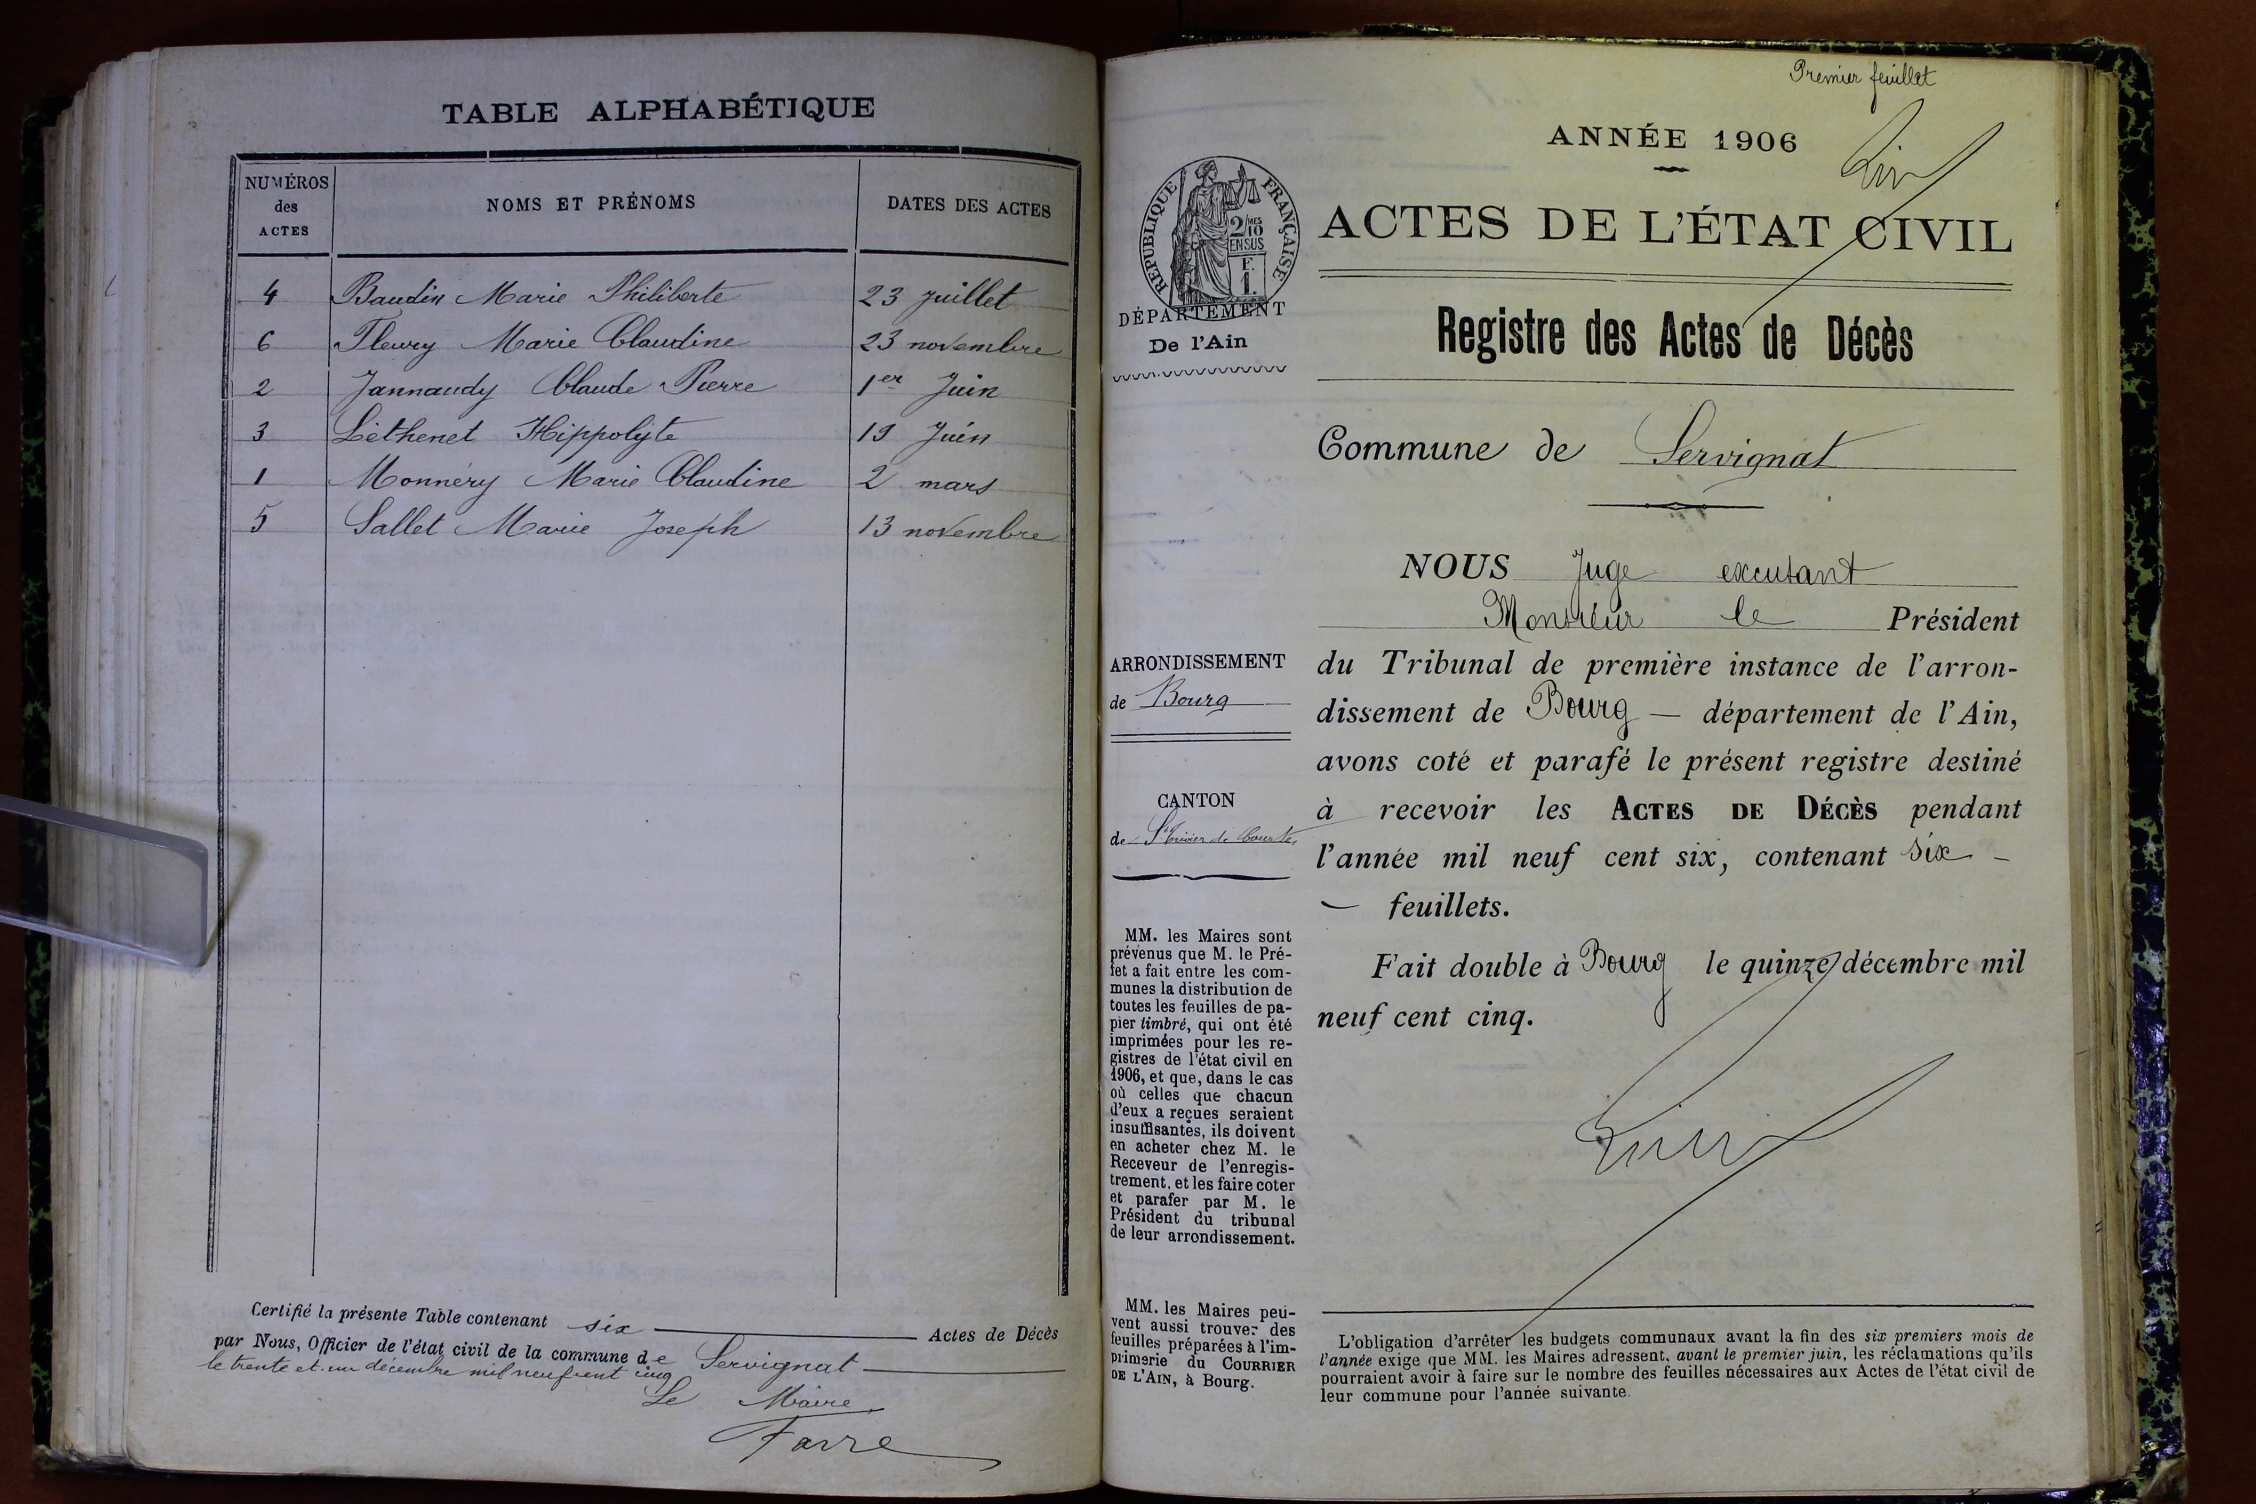 TABLE ALPHABÉTIQUE
NUMÉROS des ACTES NOMS ET PRÉNOMS DATES DES ACTES
4 Baudin Marie Philiberte 23 juillet
6 Fleury Marie Claudine 23 novembre
2 Jannaudy Claude Pierre 1er Juin
3 Léthenet Hippolyte 19 Juin
1 Monnéry Marie Claudine 2 mars
5 Sallet Marie Joseph 13 novembre
Certifié la présente Table contenant six Actes de Décès
par Nous, Officier de l'état civil de la commune de Servignat
le trente et un décembre mil neuf cent cinq
Le Maire
Favre
Premier feuillet
ANNÉE 1906
ACTES DE L'ÉTAT CIVIL
RÉPUBLIQUE FRANÇAISE
2/10MES
EN SUS
F.
1.
DÉPARTEMENT
De l'Ain
Registre des Actes de Décès
Commune de Servignat
NOUS Juge excusant
Monsieur le Président
du Tribunal de première instance de l'arron-
dissement de Bourg — département de l'Ain,
avons coté et parafé le présent registre destiné
à recevoir les ACTES DE DÉCÈS pendant
l'année mil neuf cent six, contenant six —
— feuillets.
Fait double à Bourg le quinze décembre mil
neuf cent cinq.
ARRONDISSEMENT
de Bourg
CANTON
de St Trivier de Courtes
MM. les Maires sont
prévenus que M. le Pré-
fet a fait entre les com-
munes la distribution de
toutes les feuilles de pa-
pier timbré, qui ont été
imprimées pour les re-
gistres de l'état civil en
1906, et que, dans le cas
où celles que chacun
d'eux a reçues seraient
insuffisantes, ils doivent
en acheter chez M. le
Receveur de l'enregis-
trement, et les faire coter
et parafer par M. le
Président du tribunal
de leur arrondissement.
MM. les Maires peu-
vent aussi trouver des
feuilles préparées à l'im-
primerie du COURRIER
DE L'AIN, à Bourg.
L'obligation d'arrêter les budgets communaux avant la fin des six premiers mois de
l'année exige que MM. les Maires adressent, avant le premier juin, les réclamations qu'ils
pourraient avoir à faire sur le nombre des feuilles nécessaires aux Actes de l'état civil de
leur commune pour l'année suivante.